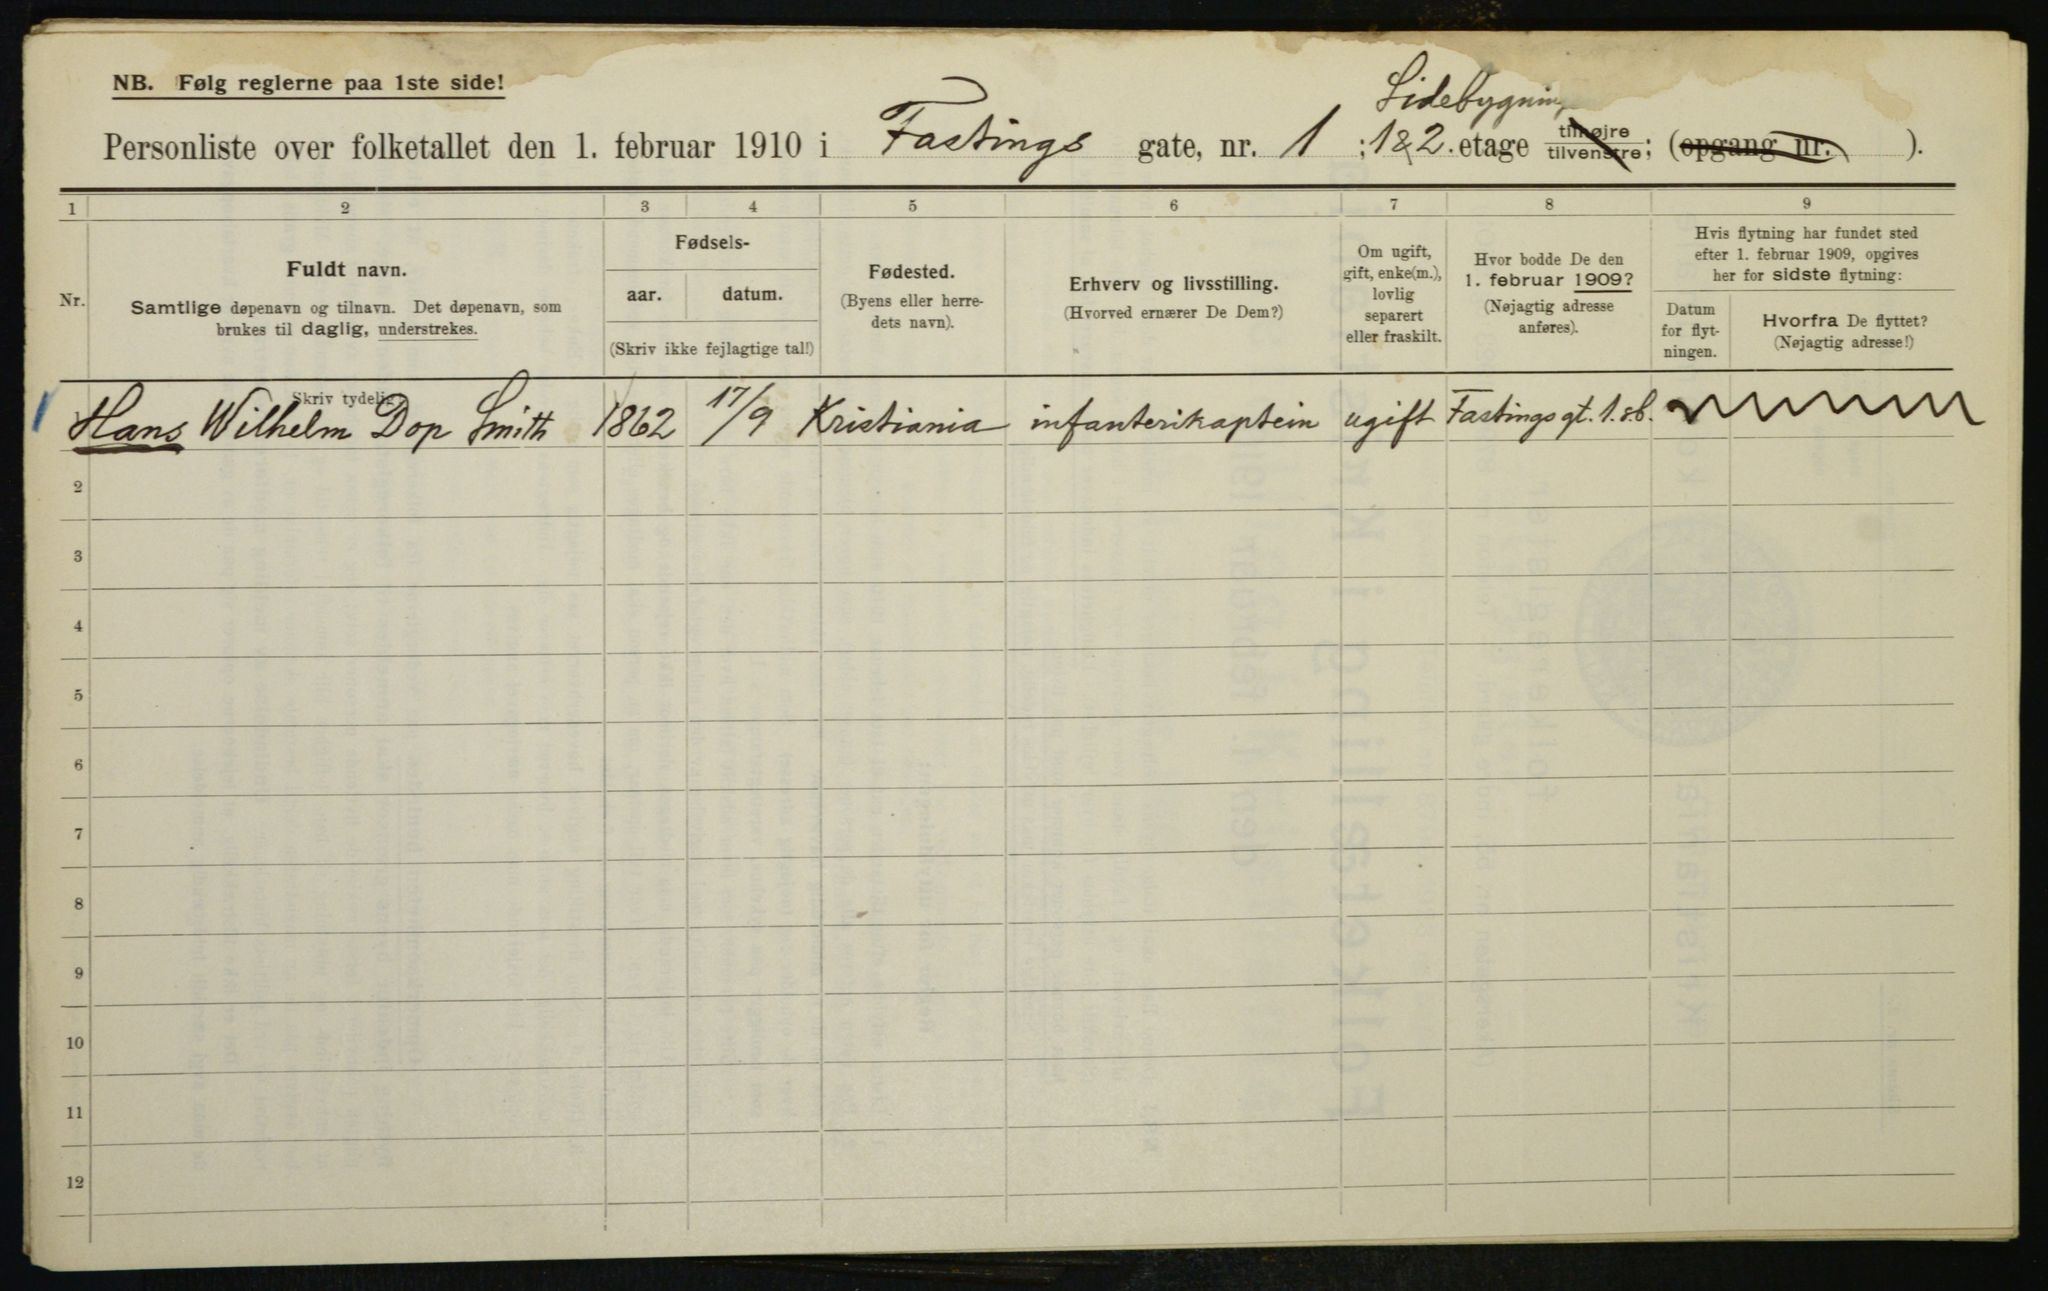 NB. Følg reglerne paa 1ste side!
Sidebygning
Personliste over folketallet den 1. februar 1910 i Fastings gate, nr. 1 ; 1 & 2. etage tilhøjre tilvenstre ; (opgang nr. ).
1 2 3 4 5 6 7 8 9
Nr.
Fuldt navn.
Samtlige døpenavn og tilnavn. Det døpenavn, som
brukes til daglig, understrekes.
Fødsels-
aar. datum.
(Skriv ikke fejlagtige tal!)
Fødested.
(Byens eller herre-
dets navn).
Erhverv og livsstilling.
(Hvorved ernærer De Dem?)
Om ugift,
gift, enke(m.),
lovlig
separert
eller fraskilt.
Hvor bodde De den
1. februar 1909?
(Nøjagtig adresse
anføres).
Hvis flytning har fundet sted
efter 1. februar 1909, opgives
her for sidste flytning:
Datum
for flyt-
ningen.
Hvorfra De flyttet?
(Nøjagtig adresse!)
Skriv tydelig
Hans Wilhelm Dop Smith 1862 17/9 Kristiania infanterikaptein ugift Fastingsgt. 1. s.b.
2
3
4
5
6
7
8
9
10
11
12